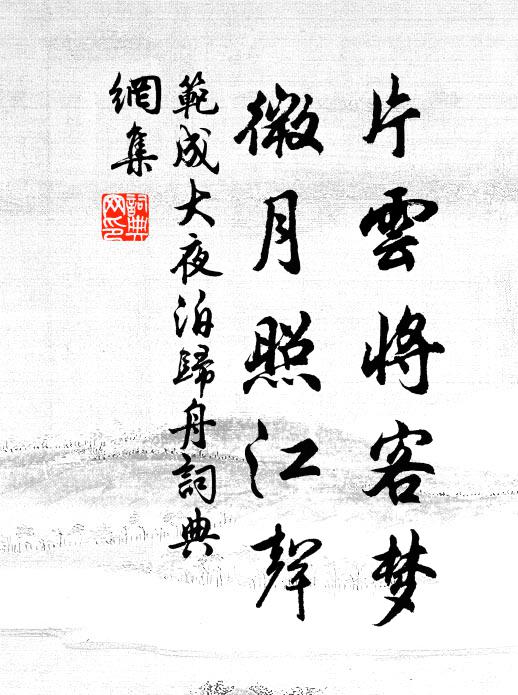 片雲將客梦
微月照江聲
範成大夜泊歸舟詞典
網集
詞典
网印